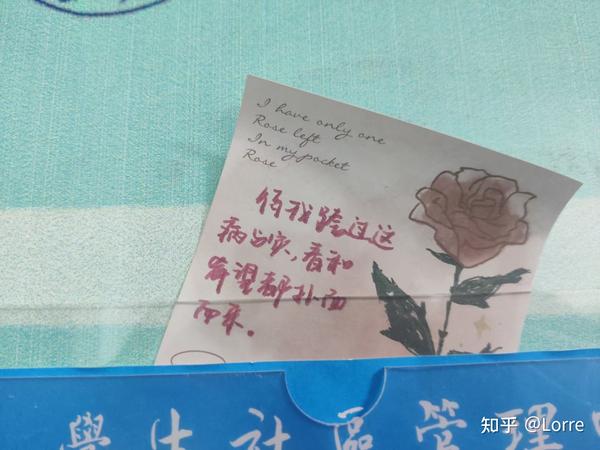 I have only one
Rose left
In my pocket
Rose
待我跨过这
病与灾，春和
希望都扑面
而来。
學生社區管理
知乎 @Lorre